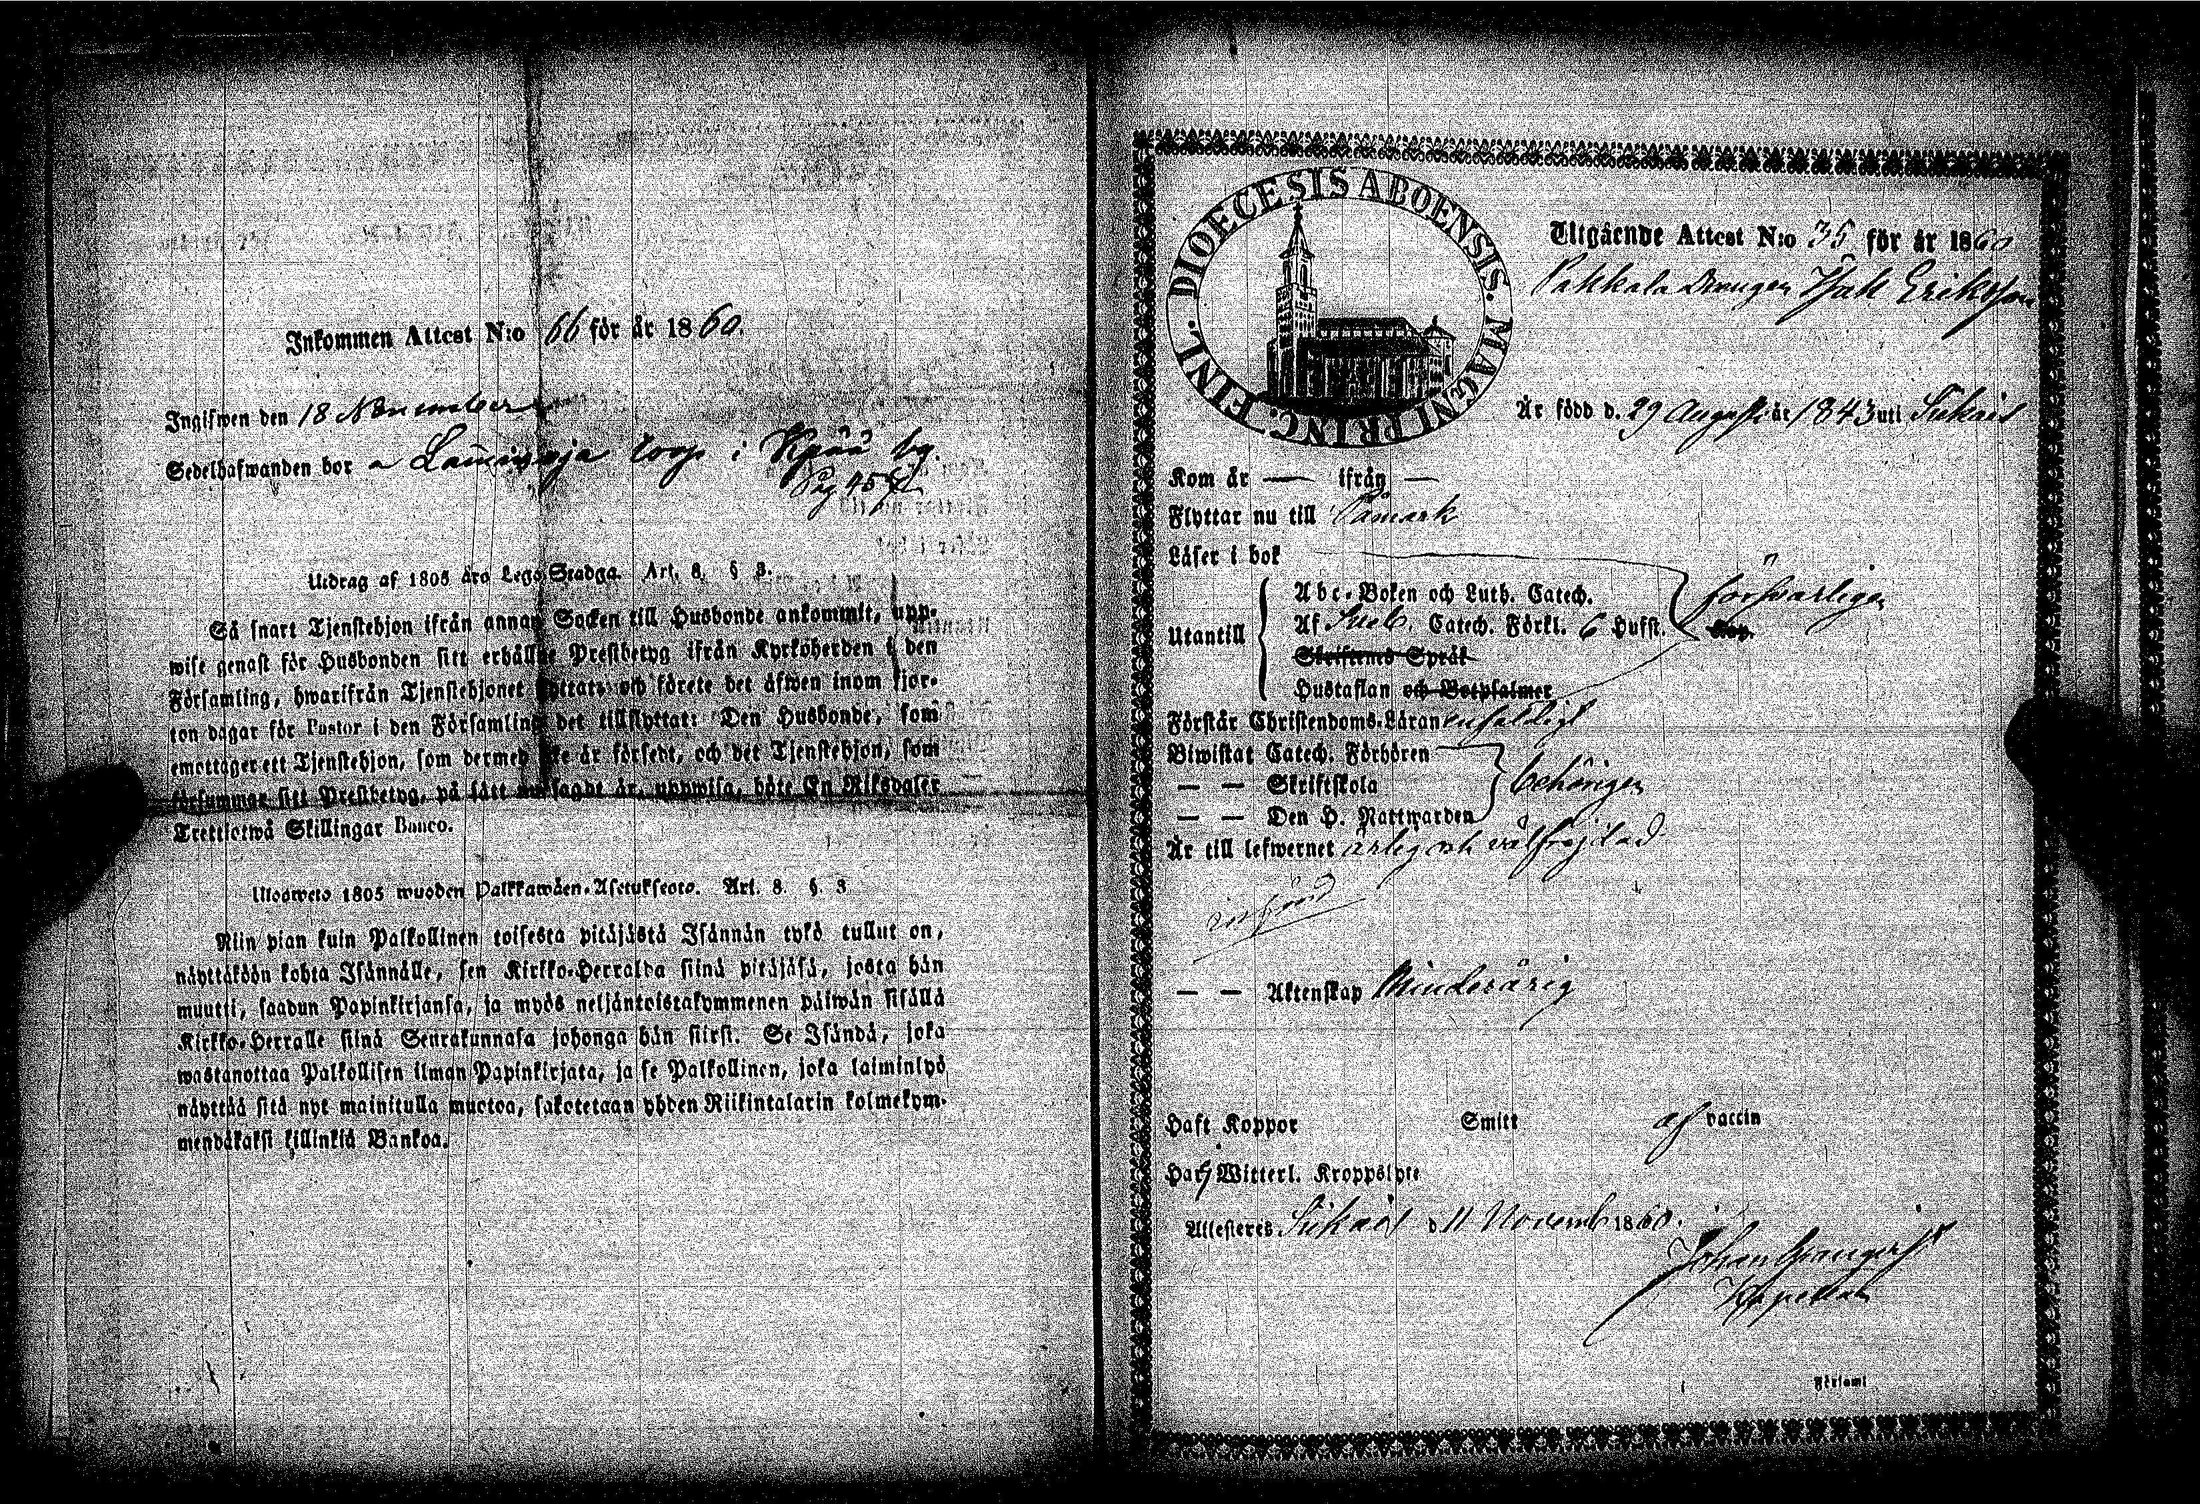 Inkommen Attest N:o 66 för år 1860.
Ingifwen den 18 November
Sedelhafwanden bor torp i by.
Pag 45
Utdrag af 1805 års Lego-Stadga. Art. 8. § 3.
Så snart Tjenstehjon ifrån annan Socken till Husbonde ankommit, upp-
wise genast för Husbonden sitt erhållne Prestbetyg ifrån Kyrkoherden i den
Församling, hwarifrån Tjenstehjonet flyttat, och förete det äfwen inom fjor-
ton dagar för Pastor i den Församling det tillflyttat: Den Husbonde, som
emottager ett Tjenstehjon, som dermed icke är försedt, och det Tjenstehjon, som
försummar sitt Prestbetyg, på sätt nu sagdt är, uppwisa, böte En Riksdaler
Trettiotwå Skillingar Banco.
Ulosweto 1805 wuoden Palkkawäen-Asetuksesta. Art. 8. § 3
Niin pian kuin Palkollinen toisesta pitäjästä Isännän tykö tullut on,
näyttäköön kohta Isännälle, sen Kirkko-Herralda siinä pitäjäsä, josta hän
muutti, saadun Papinkirjansa, ja myös neljäntoistakymmenen päiwän sisällä
Kirkko-Herralle siinä Seurakunnasa johonga hän siirsi. Se Isändä, joka
wastanottaa Palkollisen ilman Papinkirjata, ja se Palkollinen, joka laiminlyö
näyttää sitä nyt mainitulla muotoa, sakotetaan yhden Riikintalarin kolmekym-
mendäkaksi killinkiä Bankoa.
DIOECESIS ABOENSIS. MAGNI PRINC. FINL.
Utgående Attest N:o 35 för år 1860
Pakkala Drengen Isak Eriksson
Är född d. 29 Augusti år 1843 uti Siikais
Kom år — ifrån —
Flyttar nu till Påmark
Läser i bok
Utantill
Abc-Boken och Luth. Catech.
Af Sueb. Catech. Förkl. 6 Hufst.
försvarligen
Skriftenes Språk
Hustaflan och Botpsalmer
Förstår Christendoms-Läran enfaldigt
Biwistat Catech. Förhören
— — Skriftskola
— — Den H. Nattwarden
behörigen
Är till lefwernet ärlig och välfrejdad
— — Äktenskap Minderårig
Haft Koppor Smitt af vaccin
Har ej Witterl. Kroppslyte
Attesteres Siikais d 11 Novemb 1860.
Kapellan
Församl